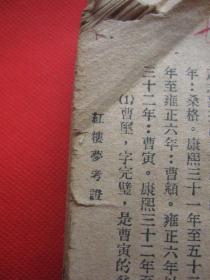 年：桑格。康熙三十一年至五十
年至雍正六年：曹頫。雍正六年
三十二年：曹寅。康熙三十二年
(1)曹璽，字完璧，是曹寅的
紅樓夢考證